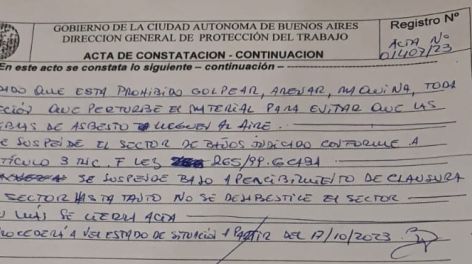 GOBIERNO DE LA CIUDAD AUTONOMA DE BUENOS AIRES
DIRECCION GENERAL DE PROTECCIÓN DEL TRABAJO
Registro Nº
ACTA Nº
01407/23
ACTA DE CONSTATACION - CONTINUACION
En este acto se constata lo siguiente – continuación –
QUE ESTA PROHIBIDO GOLPEAR, ARENAR, MAQUINA, TODA
QUE PERTURBE EL MATERIAL PARA EVITAR QUE LAS
DE ASBESTO LLEGUEN AL AIRE.
SE SUSPENDE EL SECTOR DE BAÑOS INDICADO CONFORME A
3 INC. F LEY 265/99. GCABA
SE SUSPENDE BAJO APERCIBIMIENTO DE CLAUSURA
SECTOR HASTA TANTO NO SE DESASBESTICE EL SECTOR
MAS SE CIERRA ACTA
VER ESTADO DE SITUACION A PARTIR DEL 17/10/2023